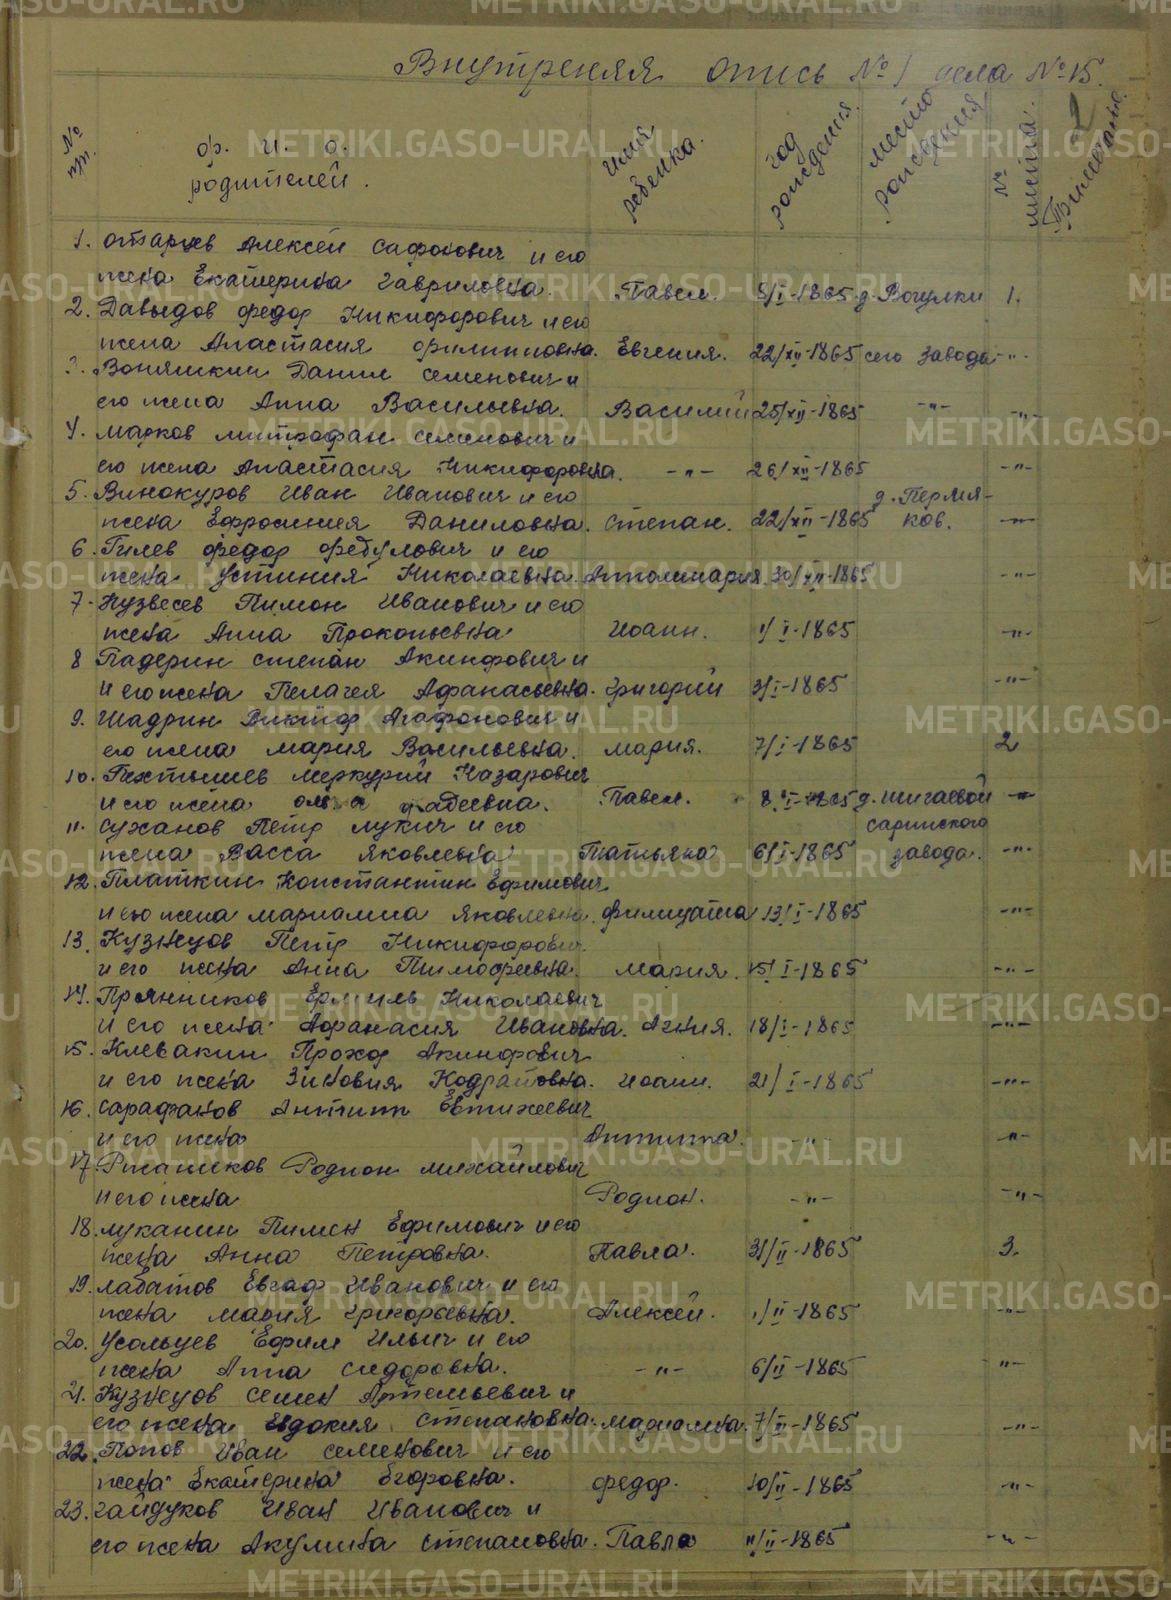 Внутренняя опись № 1 дела № 15.
2
№ п/п.
ф. и. о. родителей.
имя ребенка.
год рождения.
место рождения
№ листа.
Примечание.
1. Отарцев Алексей Сафонович и его
жена Екатерина Гавриловна. Павел. 5/I-1865 д. Вогулки 1.
2. Давыдов Федор Никифорович и его
жена Анастасия Филипповна. Евгения. 22/XII-1865 сего завода -"-
3. Воняшкин Данил Семенович и
его жена Анна Васильевна. Василий 25/XII-1865 -"- -"-
4. Марков Митрофан Семенович и
его жена Анастасия Никифоровна. -"- 26/XII-1865 -"-
5. Винокуров Иван Иванович и его д. Пермя-
жена Ефросиния Даниловна. Степан. 22/XII-1865 ков. -"-
6. Гилев Федор Федулович и его
жена Устиния Николаевна. Апполинария 30/XII-1865 -"-
7. Кузвесев Пимон Иванович и его
жена Анна Прокопьевна Иоанн. 1/I-1865 -"-
8 Падерин Степан Акинфович и
и его жена Пелагея Афанасьевна. Григорий 3/I-1865 -"-
9. Шадрин Виктор Агафонович и
его жена Мария Васильевна. Мария. 7/I-1865 2
10. Пехтышев Меркурий Назарович
и его жена Фадеевна. Павел. 8/I-1865 д. Шигаевой -"-
11. Суханов Петр Лукич и его саринского
жена Васса Яковлевна Татьяна 6/I-1865 завода. -"-
12. Платкин Константин Ефимович
и его жена Мариамна Яковлевна. Филицата 13/I-1865 -"-
13. Кузнецов Петр Никифорович
и его жена Анна Тимофеевна. Мария. 15/I-1865 -"-
14. Прянников Ермиль Николаевич
и его жена Афанасия Ивановна. Агния. 18/I-1865 -"-
15. Клевакин Прохор Акинфович
и его жена Зиновия Кодратовна. Иоанн. 21/I-1865 -"-
16. Сарафанов Антипп Евтихеевич
и его жена Антиппа. -"- -"-
17. Родион Михайлович
и его жена Родион. -"- -"-
18. Луканин Пимен Ефимович и его
жена Анна Петровна. Павла. 31/II-1865 3.
19. Лабатов Евграф Иванович и его
жена Мария Григорьевна. Алексей. 1/II-1865 -"-
20. Усольцев Ефим Ильич и его
жена Анна Сидоровна. -"- 6/II-1865 -"-
21. Кузнецов Семен Артемьевич и
его жена Идокия Степановна. Мариамна. 7/II-1865 -"-
22. Попов Иван Семенович и его
жена Екатерина Егоровна. Федор. 10/II-1865 -"-
23. Гайдуков Иван Иванович и
его жена Акулина Степановна. Павла 11/II-1865 -"-
METRIKI.GASO-URAL.RU